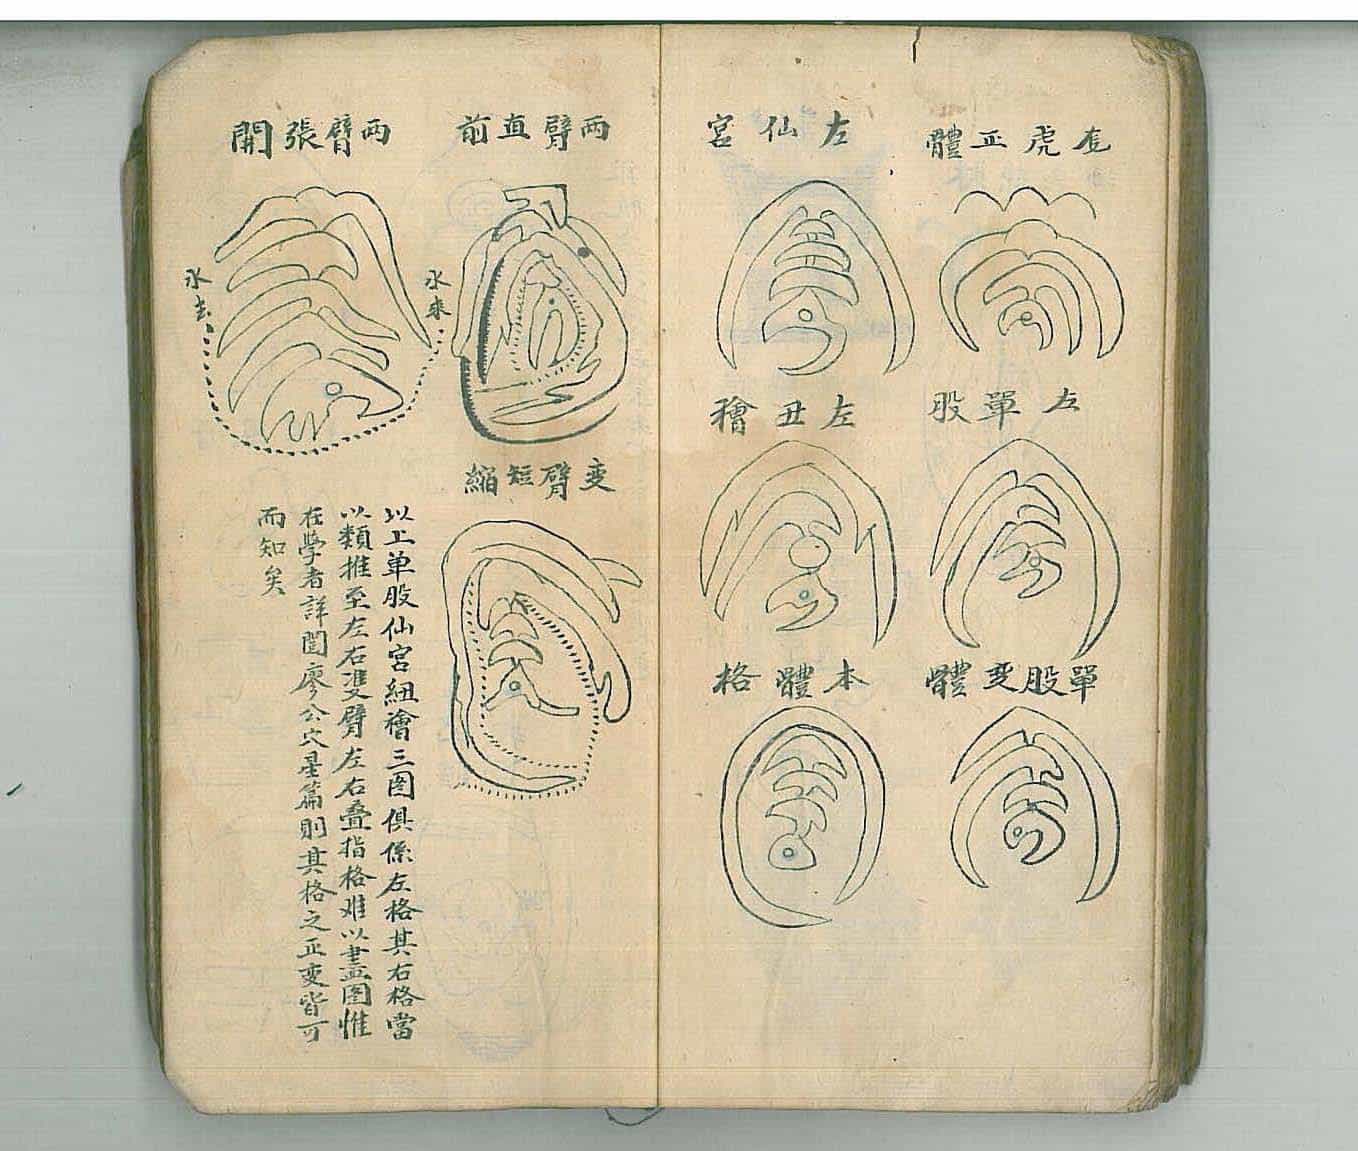 龙虎正體
左仙宮
左單股
左丑禬
單股变體
本體格
两臂直前
两臂張開
水來
水去
变臂短縮
以上单股仙宮紐禬三图俱係左格其右格當
以類推至左右双臂左右叠指格难以畫图惟
在學者詳閱廖公穴星篇則其格之正变皆可
而知矣